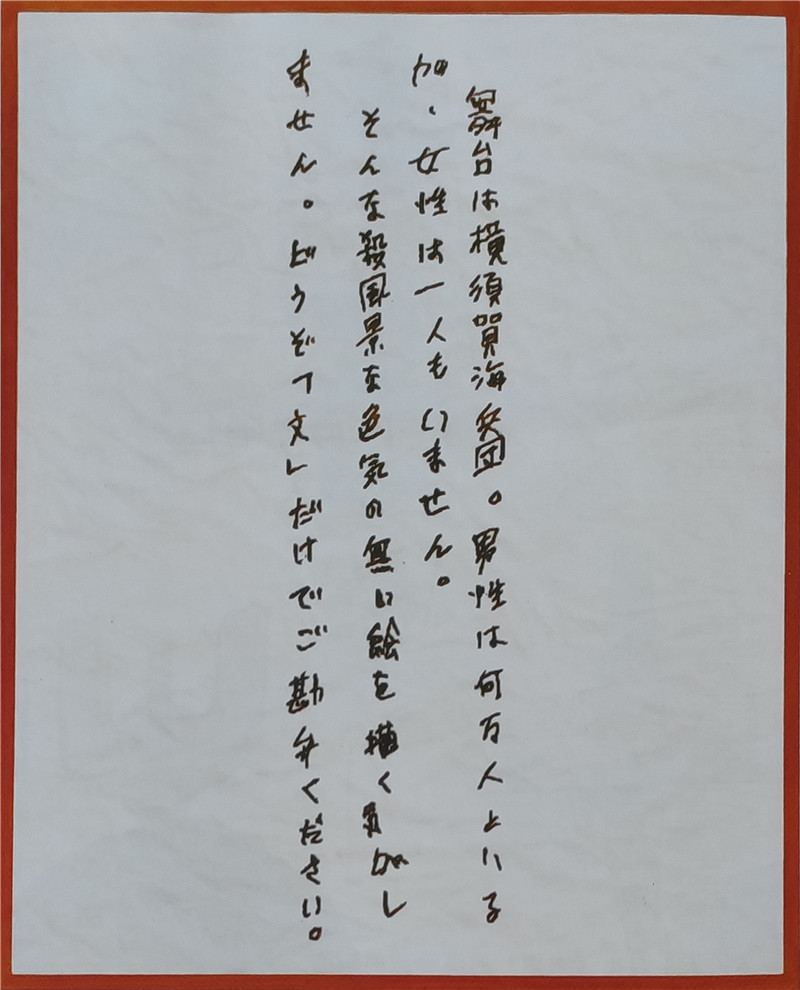 舞台は横須賀海兵団。男性は何百人といる
が、女性は一人もいません。
そんな殺風景な色気の無い絵を描く気がし
ません。どうぞ「文」だけでご勘弁ください。